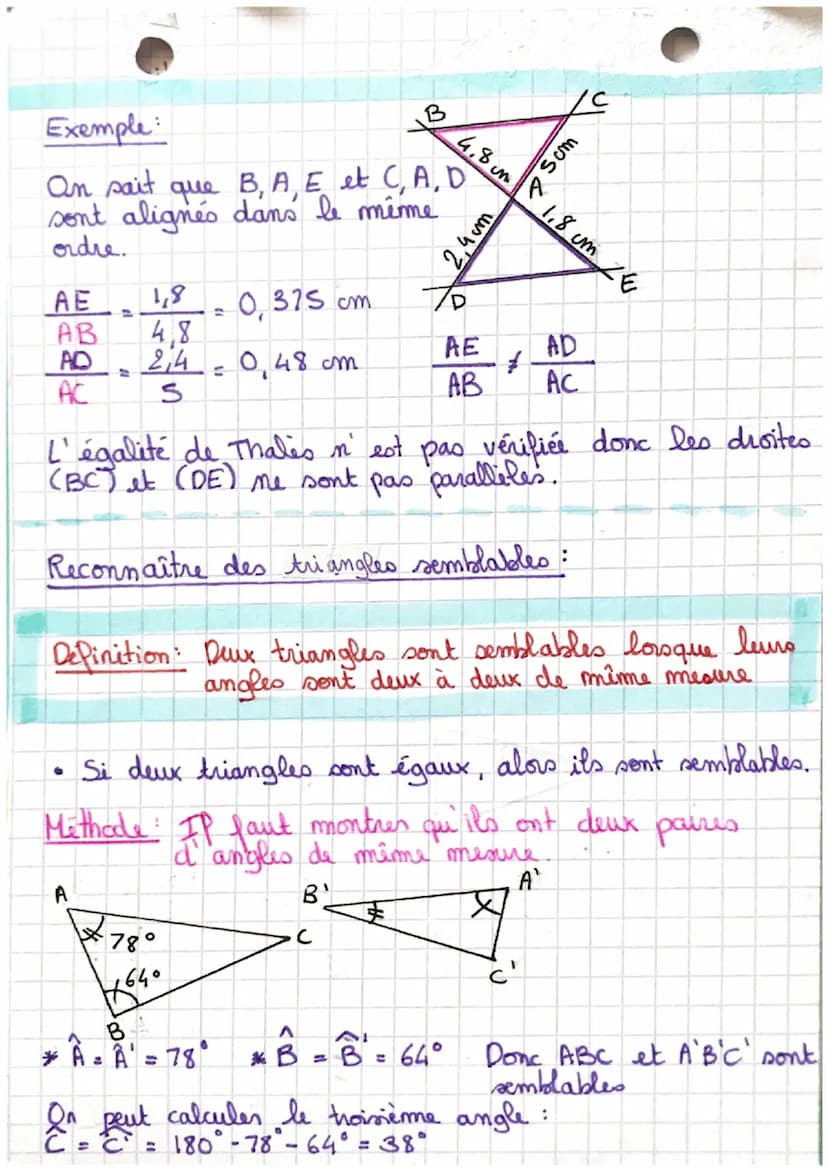 Exemple :
B
C
4,8 cm
5 cm
A
2,4 cm
1,8 cm
D
E
On sait que B, A, E et C, A, D
sont alignés dans le même
ordre.
AE/AB = 1,8/4,8 = 0,375 cm
AD/AC = 2,4/5 = 0,48 cm
AE/AB ≠ AD/AC
L'égalité de Thalès n'est pas vérifiée donc les droites
(BC) et (DE) ne sont pas parallèles.
Reconnaître des triangles semblables :
Définition : Deux triangles sont semblables lorsque leurs
angles sont deux à deux de même mesure
• Si deux triangles sont égaux, alors ils sont semblables.
Méthode : Il faut montrer qu'ils ont deux paires
d'angles de même mesure.
A
78°
64°
B
C
B'
A'
C'
* Â = Â' = 78° * B̂ = B̂' = 64° Donc ABC et A'B'C' sont
semblables
On peut calculer le troisième angle :
Ĉ = Ĉ' = 180° - 78° - 64° = 38°